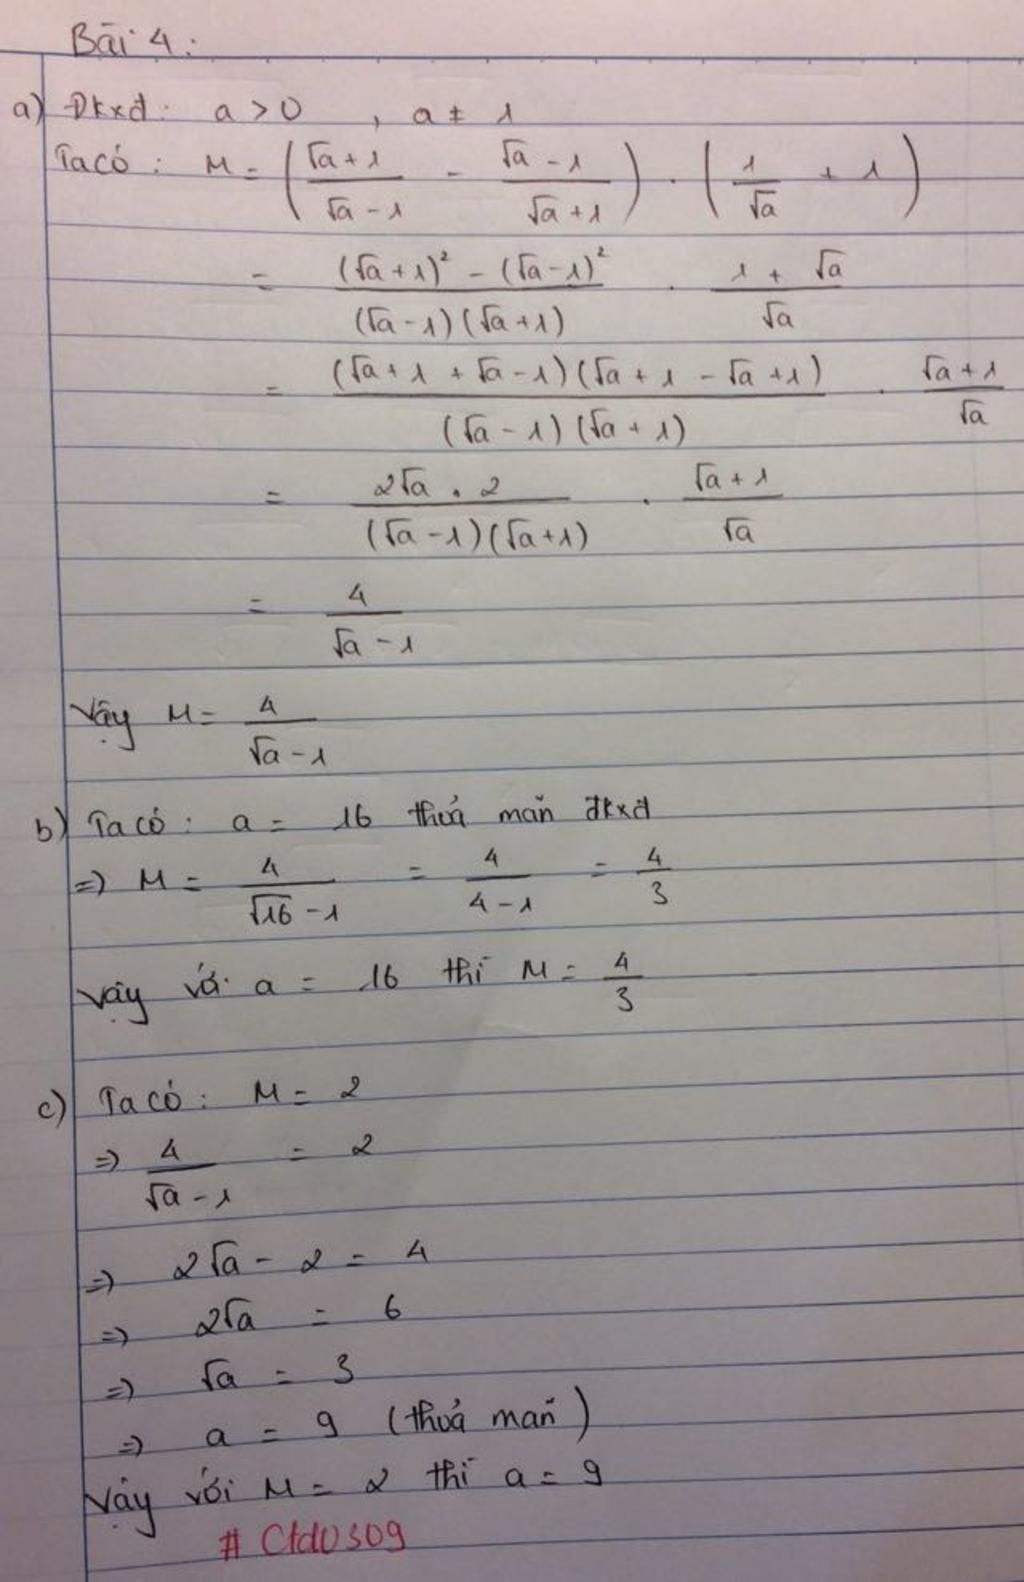 Bài 4:
a) Đkxđ: a > 0 , a ≠ 1
Ta có: M = ( (√a + 1)/(√a - 1) - (√a - 1)/(√a + 1) ) . ( 1/√a + 1 )
= ((√a + 1)² - (√a - 1)²)/((√a - 1)(√a + 1)) . (1 + √a)/√a
= ((√a + 1 + √a - 1)(√a + 1 - √a + 1))/((√a - 1)(√a + 1)) . (√a + 1)/√a
= (2√a . 2)/((√a - 1)(√a + 1)) . (√a + 1)/√a
= 4/(√a - 1)
Vậy M = 4/(√a - 1)
b) Ta có: a = 16 thoả mãn đkxđ
=> M = 4/(√16 - 1) = 4/(4 - 1) = 4/3
Vậy với a = 16 thì M = 4/3
c) Ta có: M = 2
=> 4/(√a - 1) = 2
=> 2√a - 2 = 4
=> 2√a = 6
=> √a = 3
=> a = 9 (thoả mãn)
Vậy với M = 2 thì a = 9